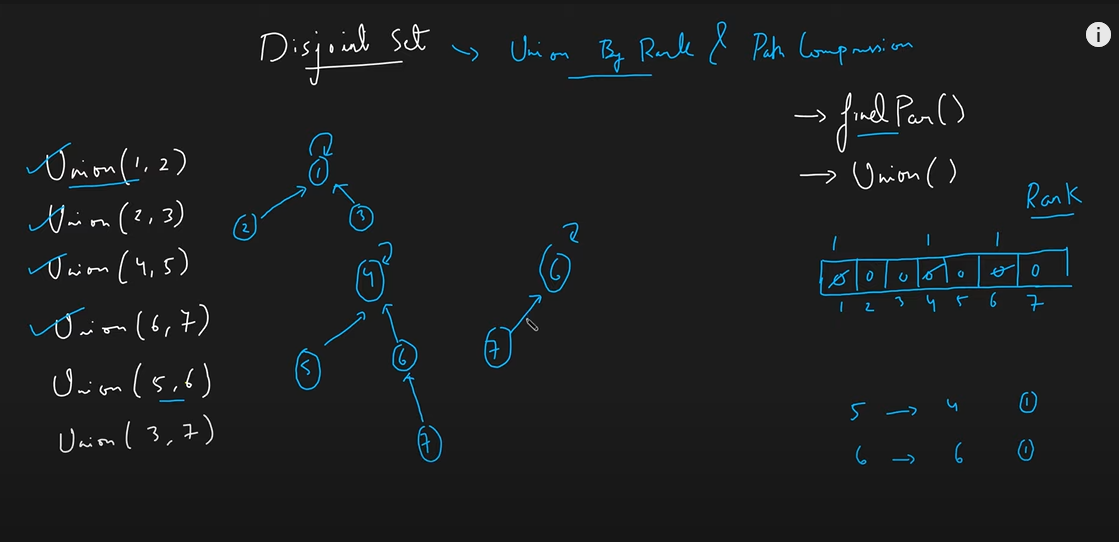 Disjoint Set → Union By Rank & Path Compression
→ findPar()
→ Union()
Union(1, 2)
Union(2, 3)
Union(4, 5)
Union(6, 7)
Union(5, 6)
Union(3, 7)
1
2 3
4
5 6
7
6
7
Rank
1 1 1
0 0 0 0 0 0 0
1 2 3 4 5 6 7
5 → 4 1
6 → 6 1
i